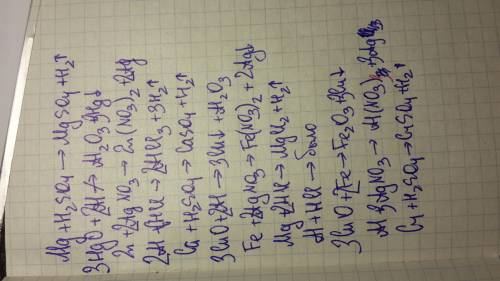 Mg + H2SO4 → MgSO4 + H2↑
3HgO + 2Al → Al2O3 + 3Hg↓
Zn + 2AgNO3 → Zn(NO3)2 + 2Ag
2Al + 6HCl → 2AlCl3 + 3H2↑
Ca + H2SO4 → CaSO4 + H2↑
3CuO + 2Al → 3Cu↓ + Al2O3
Fe + 2AgNO3 → Fe(NO3)2 + 2Ag↓
Mg + 2HCl → MgCl2 + H2↑
Al + HCl → было
3CuO + 2Fe → Fe2O3 + 3Cu↓
Al + 3AgNO3 → Al(NO3)3 + 3Ag
+ H2SO4 → + H2↑